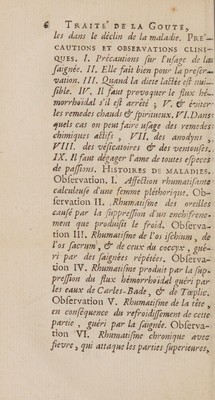 6 TRAITÉ DE LA GOUTE,
les dans le déclin de la maladie. PRÉ-
CAUTIONS ET OBSERVATIONS CLINI-
QUES. I. Précautions sur l'usage de la
saignée. II. Elle fait bien pour la preser-
vation. III. Quand la diete lactée est nui-
sible. IV. Il faut provoquer le flux hé-
morrhoïdal s'il est arrêté, V. & éviter
les remedes chauds & spiritueux. VI. Dans
quels cas on peut faire usage des remedes
chimiques actifs, VII. des anodyns,
VIII. des vésicatoires & des ventouses.
IX. Il faut dégager l'ame de toutes especes
de passions. HISTOIRES DE MALADIES.
Observation. I. Affection rhumatisante
calculeuse d'une femme pléthorique. Ob-
servation II. Rhumatisme des oreilles
causé par la suppression d'un enchifrene-
ment que produisit le froid. Observa-
tion III. Rhumatisme de l'os ischum, de
l'os sacrum, & de ceux du coccyx, gué-
ri par des saignées répétées. Observa-
tion IV. Rhumatisme produit par la sup-
pression du flux hémorrhoïdal guéri par
les eaux de Carles-Bade, & de Tœplic.
Observation V. Rhumatisme de la tête,
en conséquence du refroidissement de cette
partie, guéri par la saignée. Observa-
tion VI. Rhumatisme chronique avec
fievre, qui attaque les parties superieures,